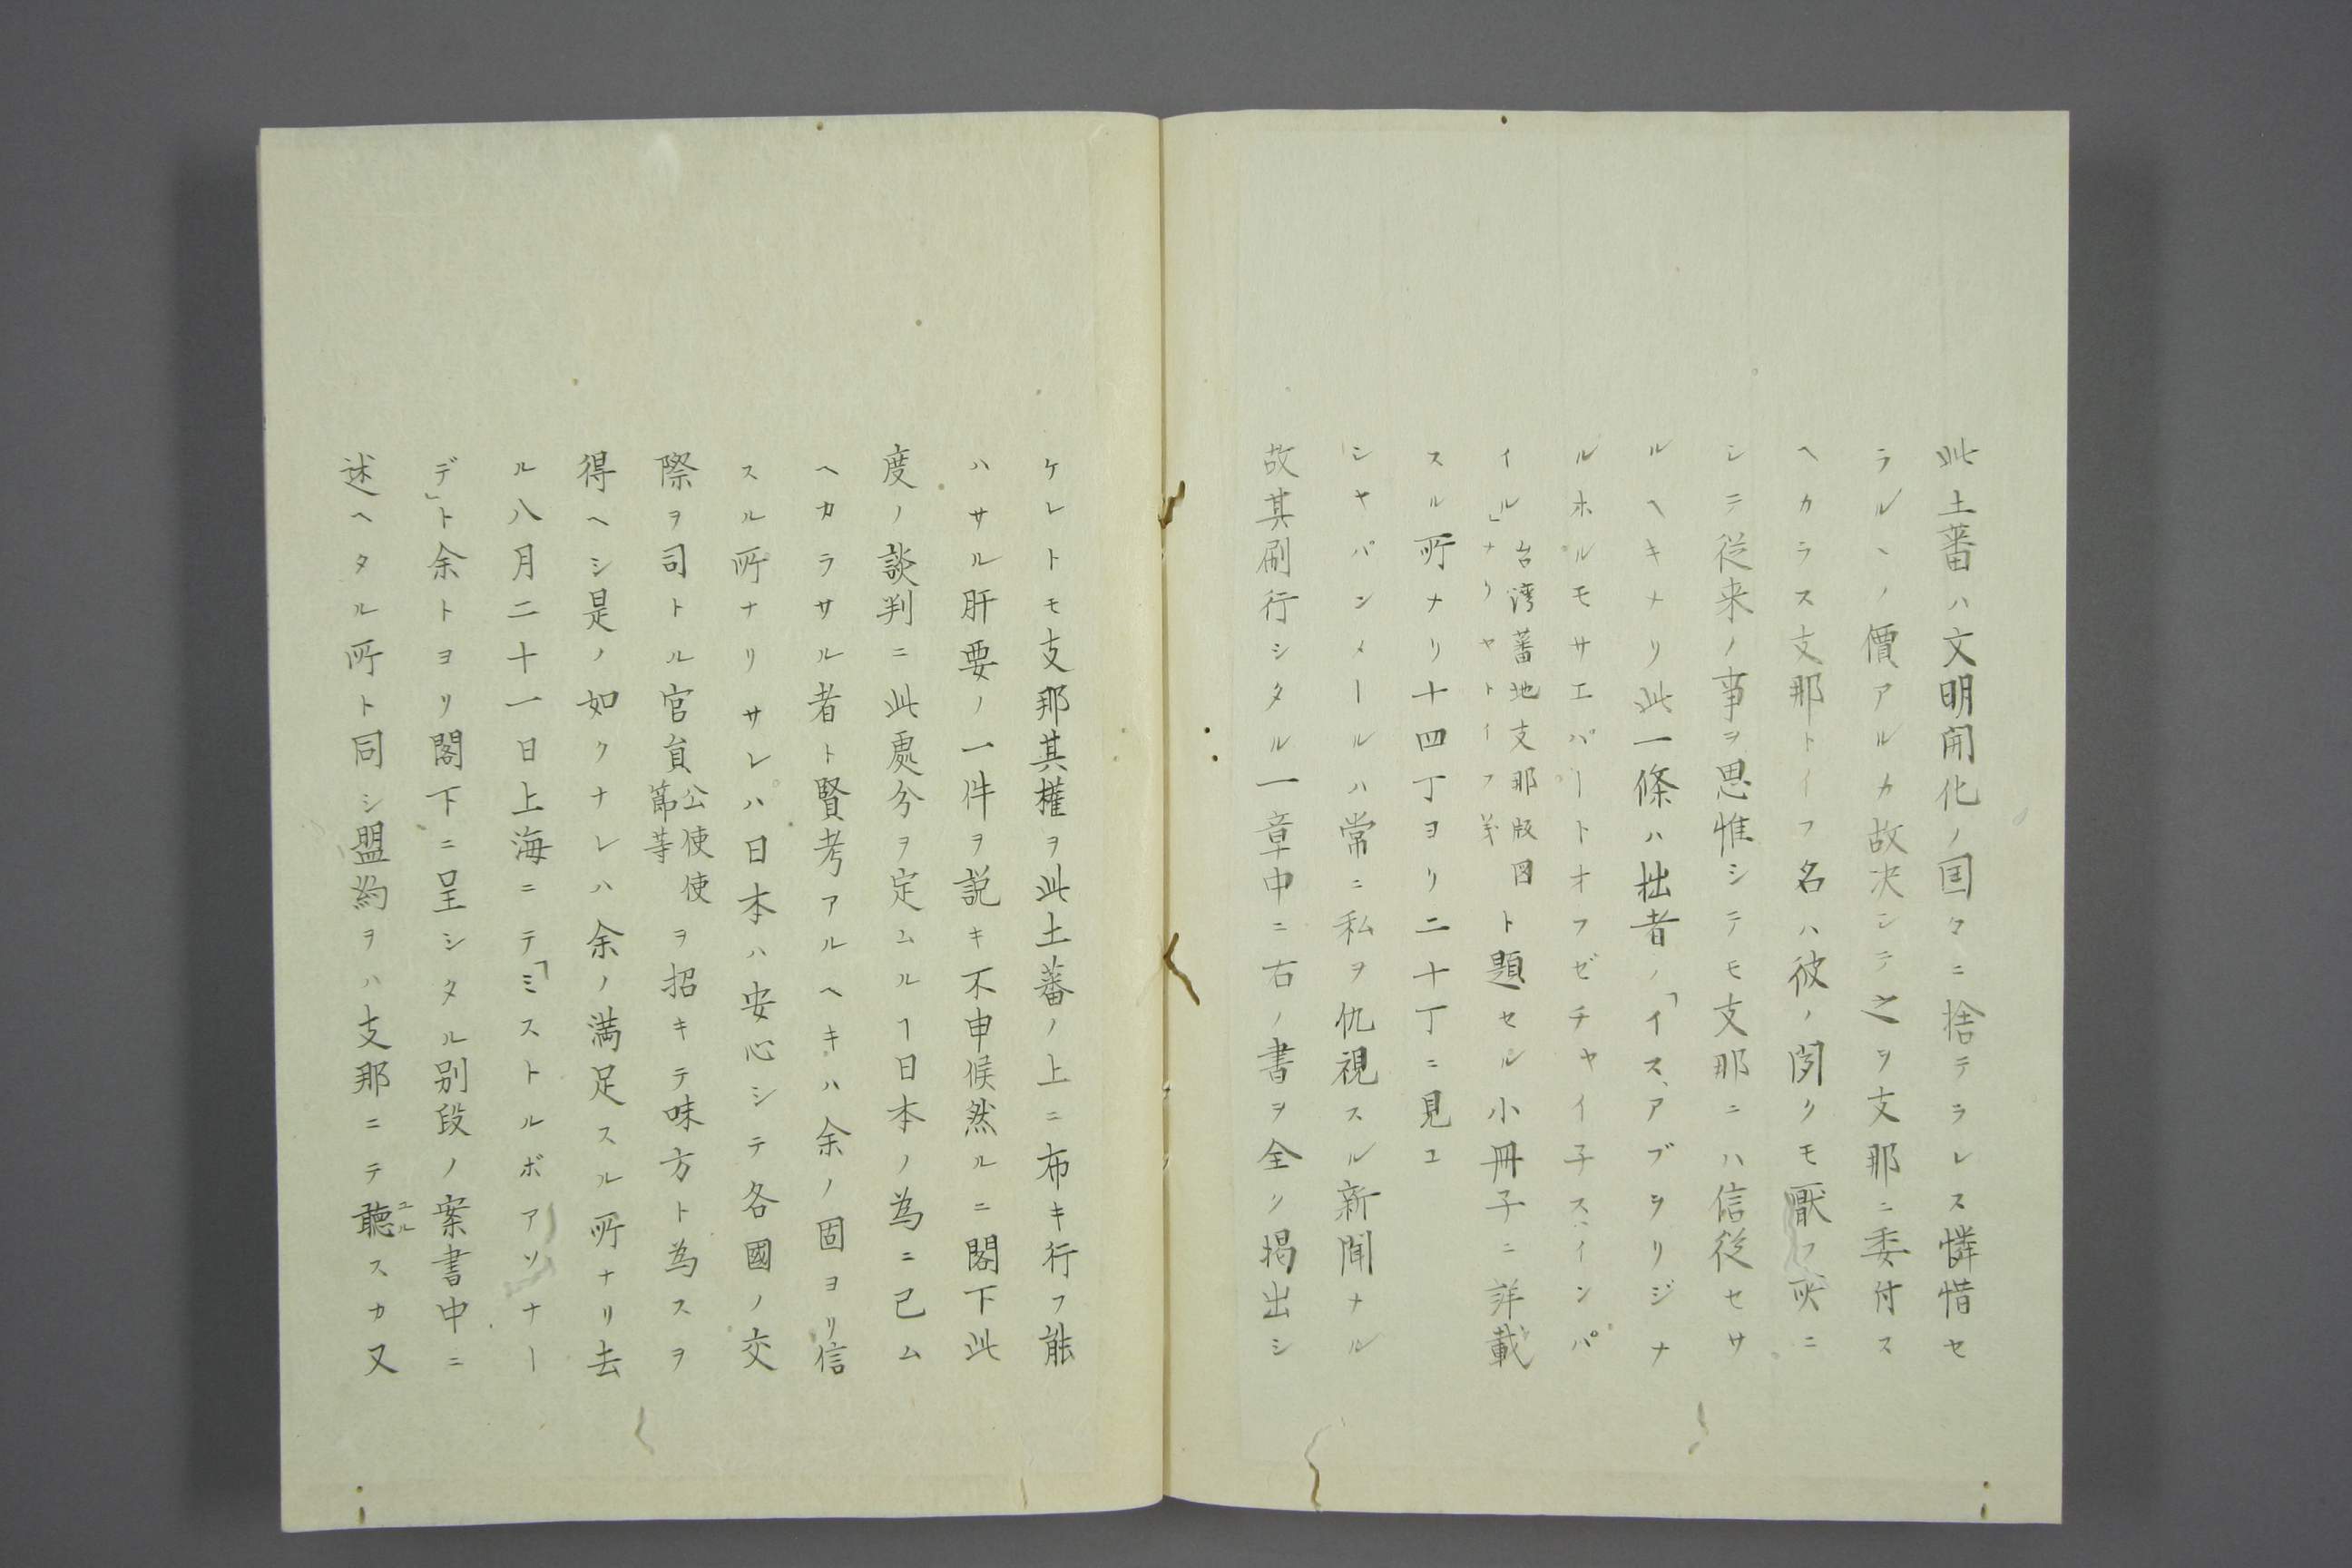 此土蕃ハ文明開化ノ国々ニ捨テラレス憐惜セ
ラルヽノ價アルカ故决シテ之ヲ支那ニ委付ス
ヘカラス支那トイフ名ハ彼ノ聞クモ厭フ灰ニ
シテ従来ノ事ヲ思惟シテモ支那ニハ信従セサ
ルヘキナリ此一條ハ拙者ノ「イズ、アブヲリジナ
ルホルモサエパートオフゼチャイ子ズ、インパ
イル」台湾蕃地支那版図ナリヤトイフ義ト題セル小冊子ニ詳載
スル所ナリ十四丁ヨリ二十丁ニ見ユ
シヤパンメールハ常ニ私ヲ仇視スル新聞ナル
故其刷行シタル一章中ニ右ノ書ヲ全ク掲出シ
ケレトモ支那其權ヲ此土蕃ノ上ニ布キ行フ能
ハサル肝要ノ一件ヲ説キ不申候然ルニ閣下此
度ノ談判ニ此處分ヲ定ムルヿ日本ノ為ニ已ム
ヘカラサル者ト賢考アルヘキハ余ノ固ヨリ信
スル所ナリサレハ日本ハ安心シテ各國ノ交
際ヲ司トル官員公使使節等ヲ招キテ味方ト為スヲ
得ヘシ是ノ如クナレハ余ノ満足スル所ナリ去
ル八月二十一日上海ニテ「ミストルボアソナー
デ」ト余トヨリ閣下ニ呈シタル別段ノ案書中ニ
述ヘタル所ト同シ盟約ヲハ支那ニテ聴ユルスカ又